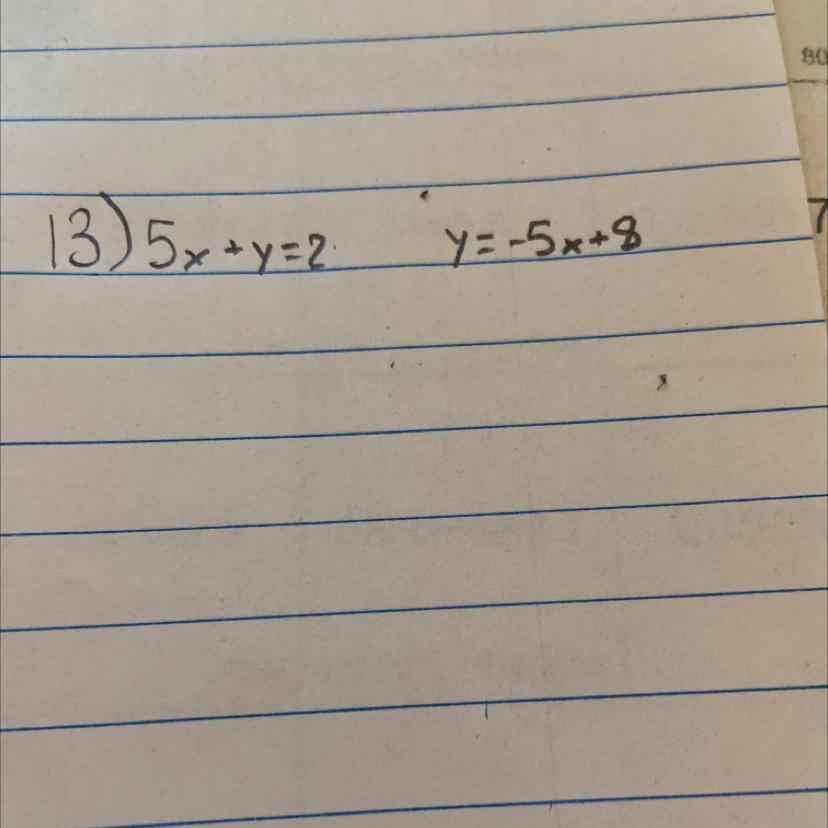 80
13) 5x + y = 2 y = -5x + 8
7